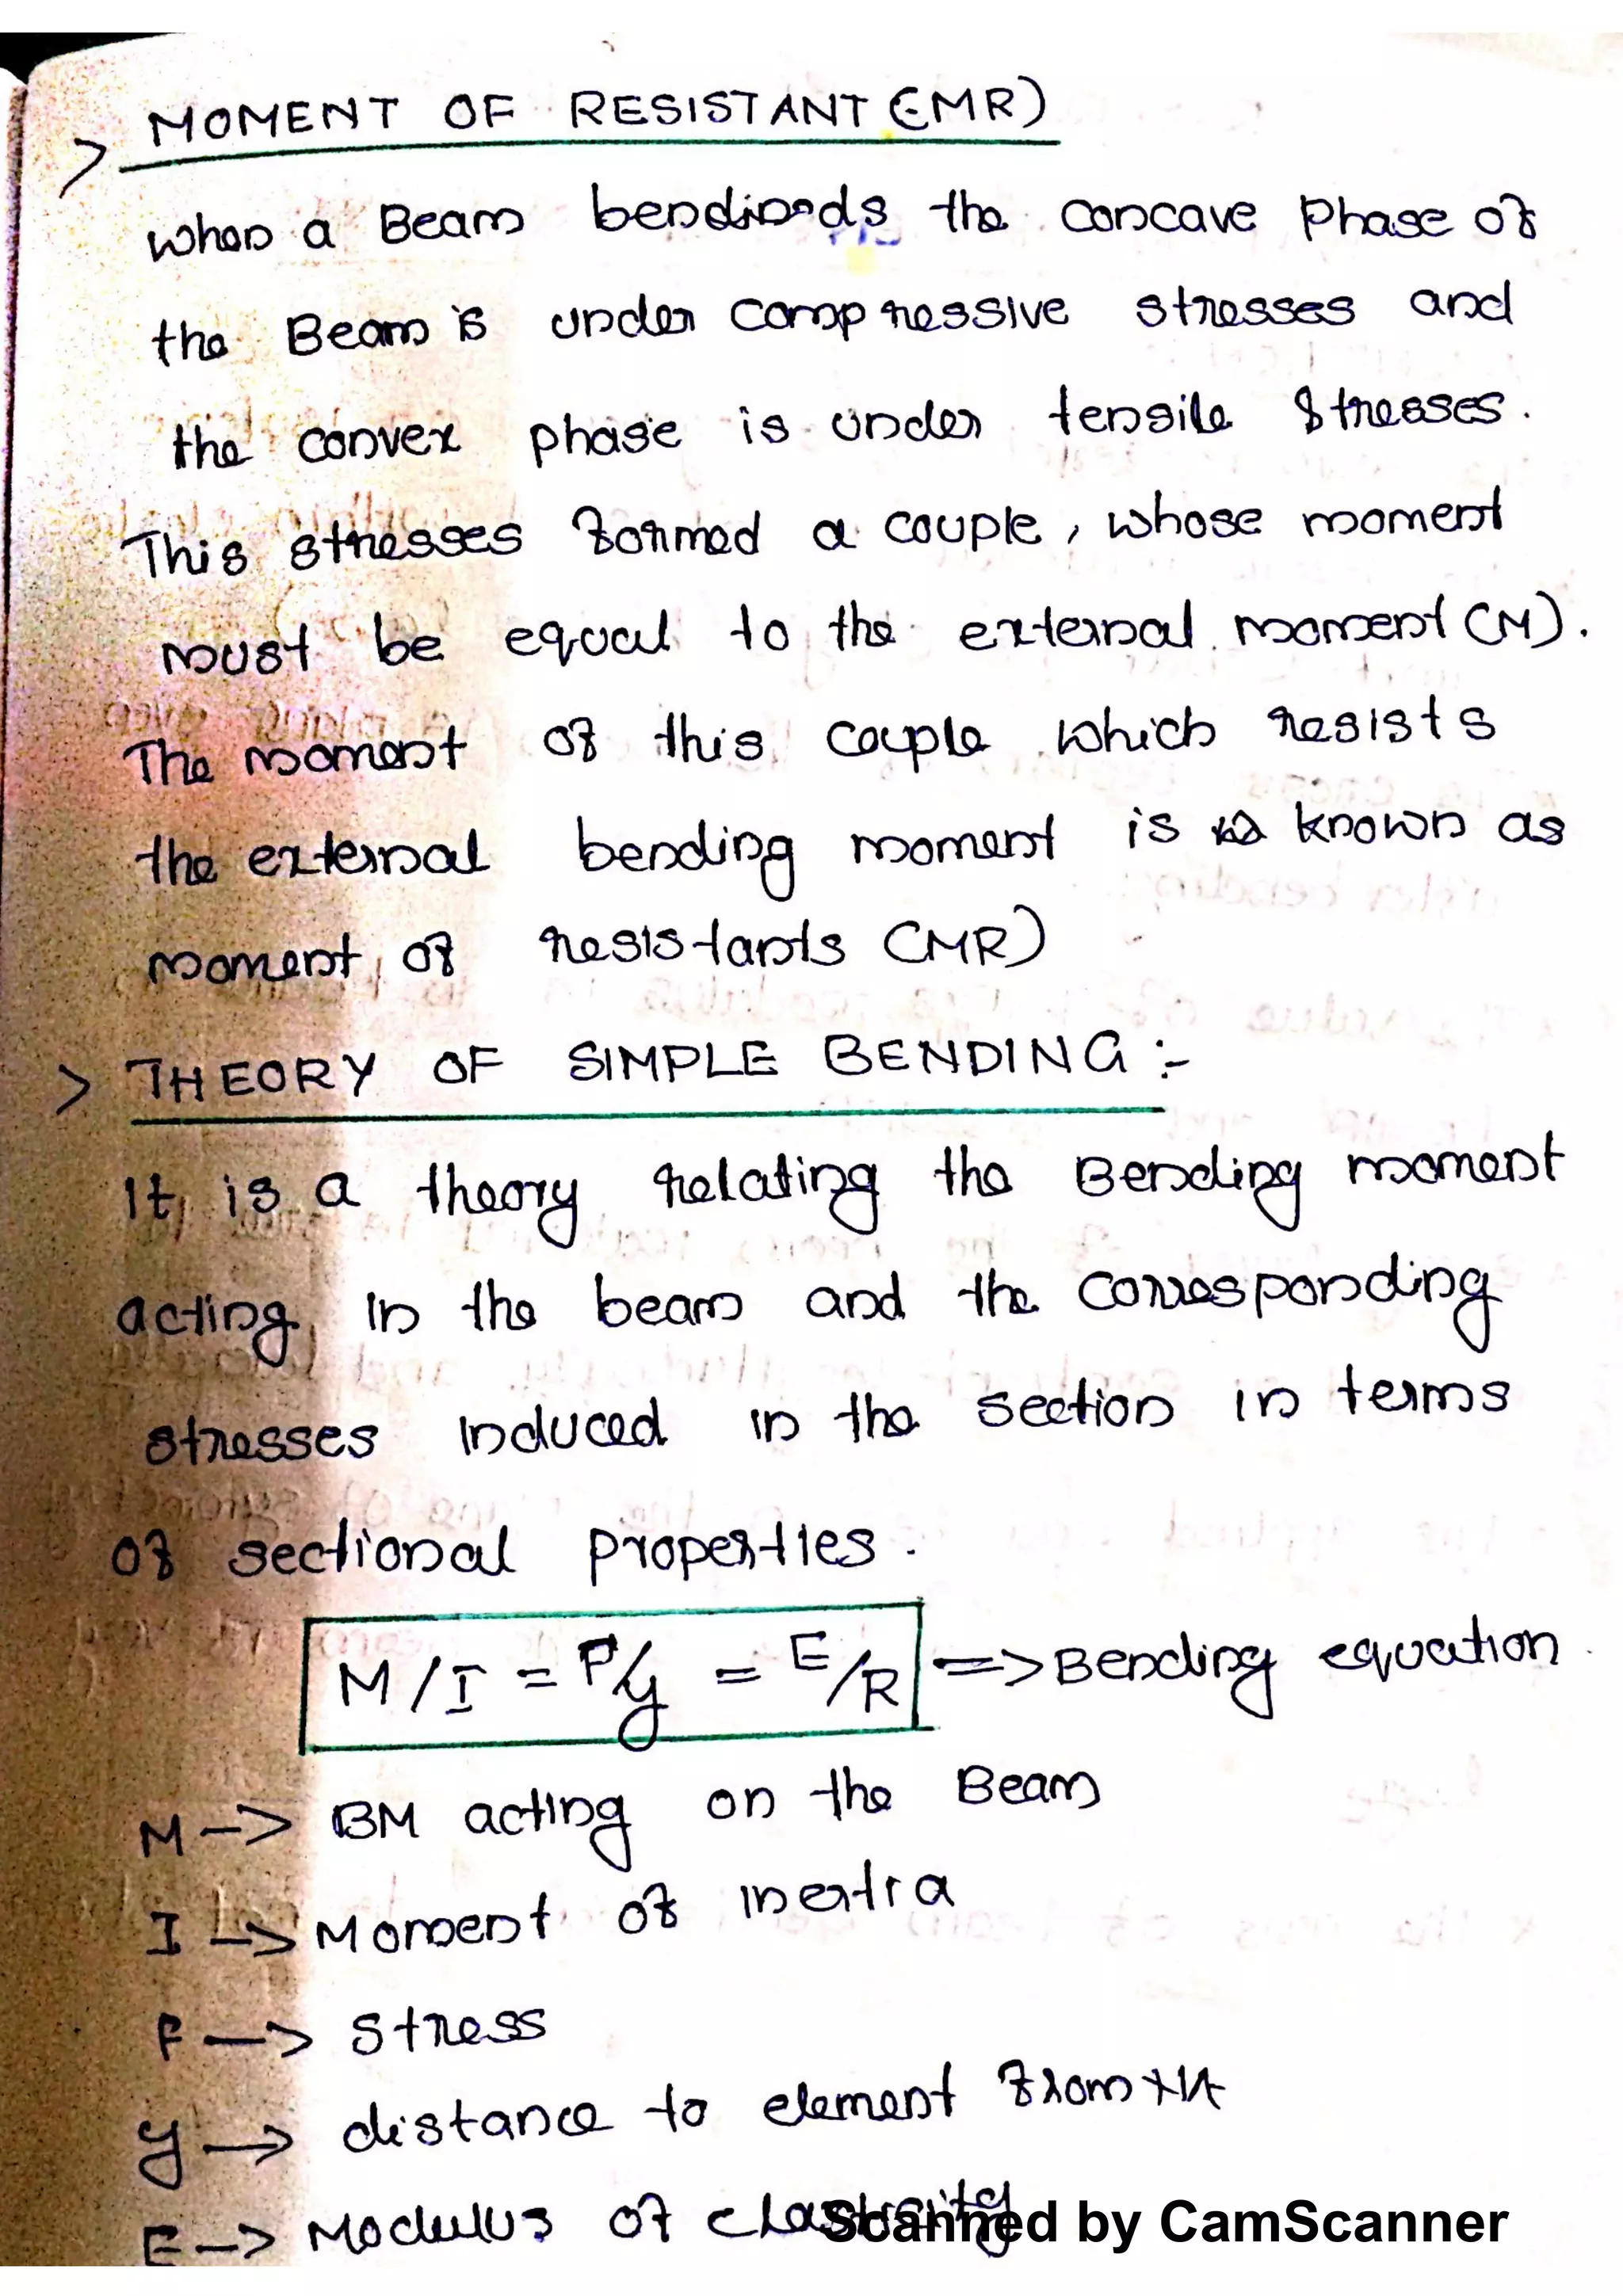 > MOMENT OF RESISTANT (MR)
when a Beam bends the concave Phase of
the Beam is under compressive stresses and
the convex phase is under tensile stresses.
This stresses formed a couple, whose moment
must be equal to the external moment (M).
The moment of this couple which resists
the external bending moment is known as
moment of resistants (MR)
> THEORY OF SIMPLE BENDING :-
It is a theory relating the Bending moment
acting in the beam and the corresponding
stresses induced in the section in terms
of sectional properties.
M/I = F/y = E/R => Bending equation
M -> BM acting on the Beam
I -> Moment of inertia
F -> stress
y -> distance to element from NA
E -> Modulus of elasticity
Scanned by CamScanner